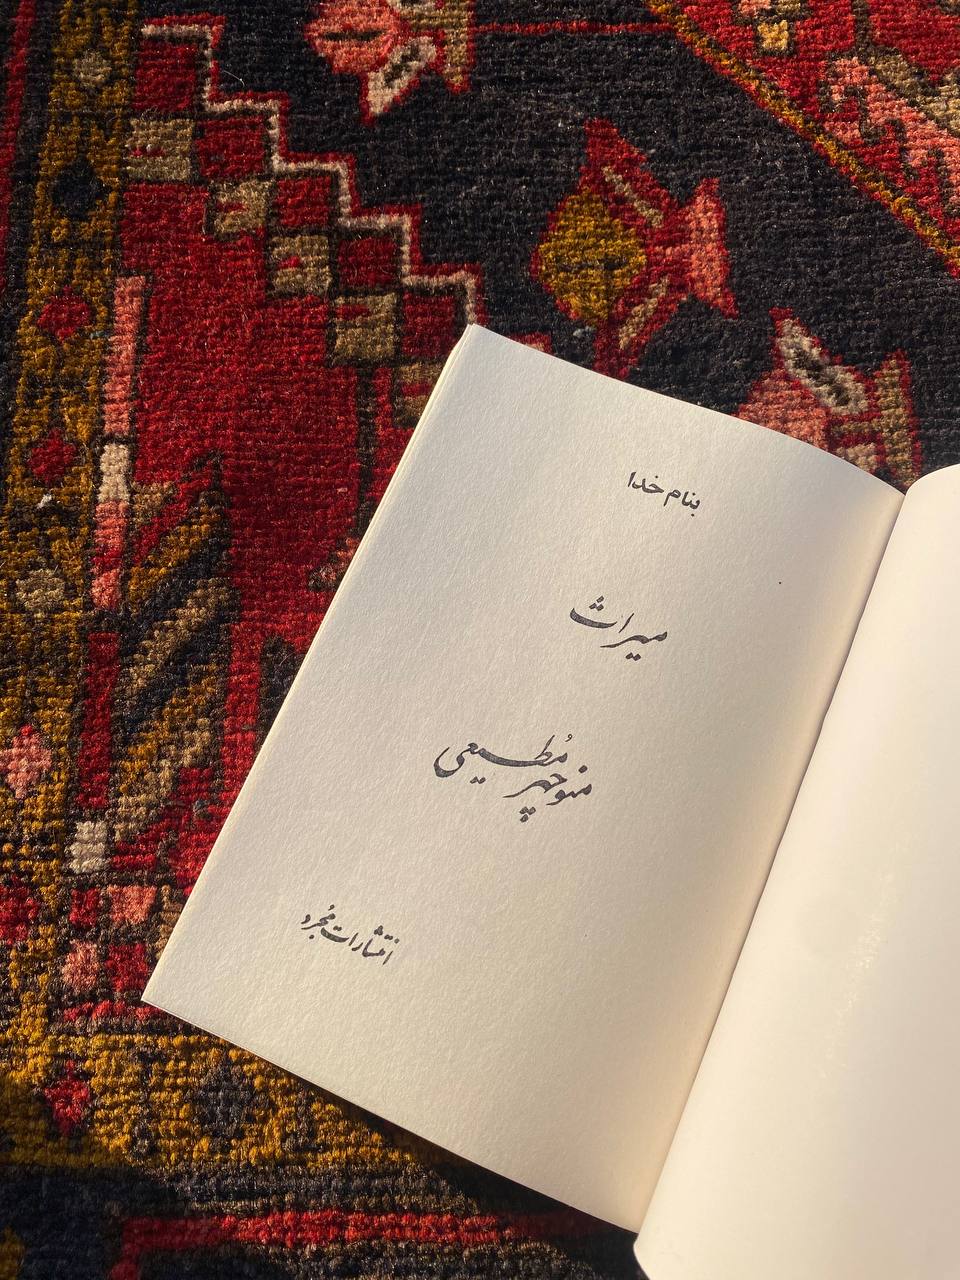 بنام خدا
میراث
منوچهر مُطیعی
انتشارات مُجرد